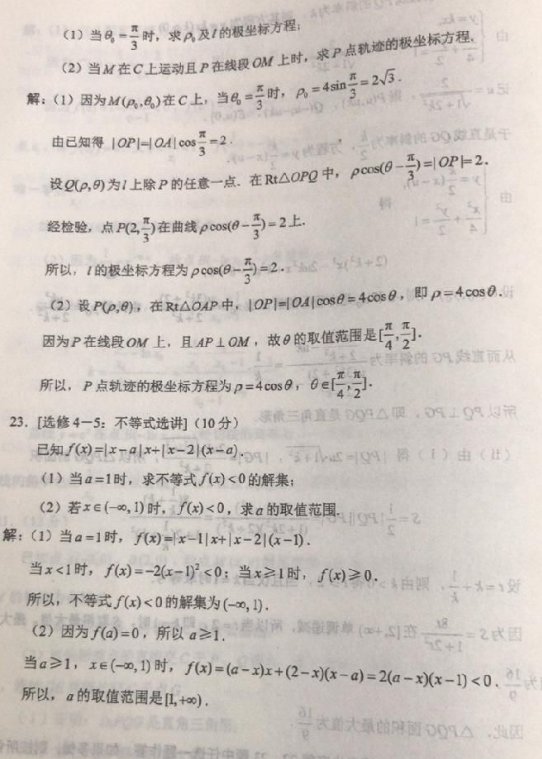 (1) 当θ₀=π/3时，求ρ₀及l的极坐标方程；
(2) 当M在C上运动且P在线段OM上时，求P点轨迹的极坐标方程.
解：(1) 因为M(ρ₀,θ₀)在C上，当θ₀=π/3时，ρ₀=4sin π/3=2√3.
由已知得 |OP|=|OA|cos π/3=2.
设Q(ρ,θ)为l上除P的任意一点. 在Rt△OPQ中，ρcos(θ-π/3)=|OP|=2.
经检验，点P(2,π/3)在曲线ρcos(θ-π/3)=2上.
所以，l的极坐标方程为ρcos(θ-π/3)=2.
(2) 设P(ρ,θ)，在Rt△OAP中，|OP|=|OA|cosθ=4cosθ，即ρ=4cosθ.
因为P在线段OM上，且AP⊥OM，故θ的取值范围是[π/4,π/2].
所以，P点轨迹的极坐标方程为ρ=4cosθ，θ∈[π/4,π/2].
23. [选修4－5：不等式选讲]（10分）
已知f(x)=|x-a|x+|x-2|(x-a).
(1) 当a=1时，求不等式f(x)<0的解集；
(2) 若x∈(-∞,1)时，f(x)<0，求a的取值范围.
解：(1) 当a=1时，f(x)=|x-1|x+|x-2|(x-1).
当x<1时，f(x)=-2(x-1)²<0；当x≥1时，f(x)≥0.
所以，不等式f(x)<0的解集为(-∞,1).
(2) 因为f(a)=0，所以a≥1.
当a≥1，x∈(-∞,1)时，f(x)=(a-x)x+(2-x)(x-a)=2(a-x)(x-1)<0.
所以，a的取值范围是[1,+∞).